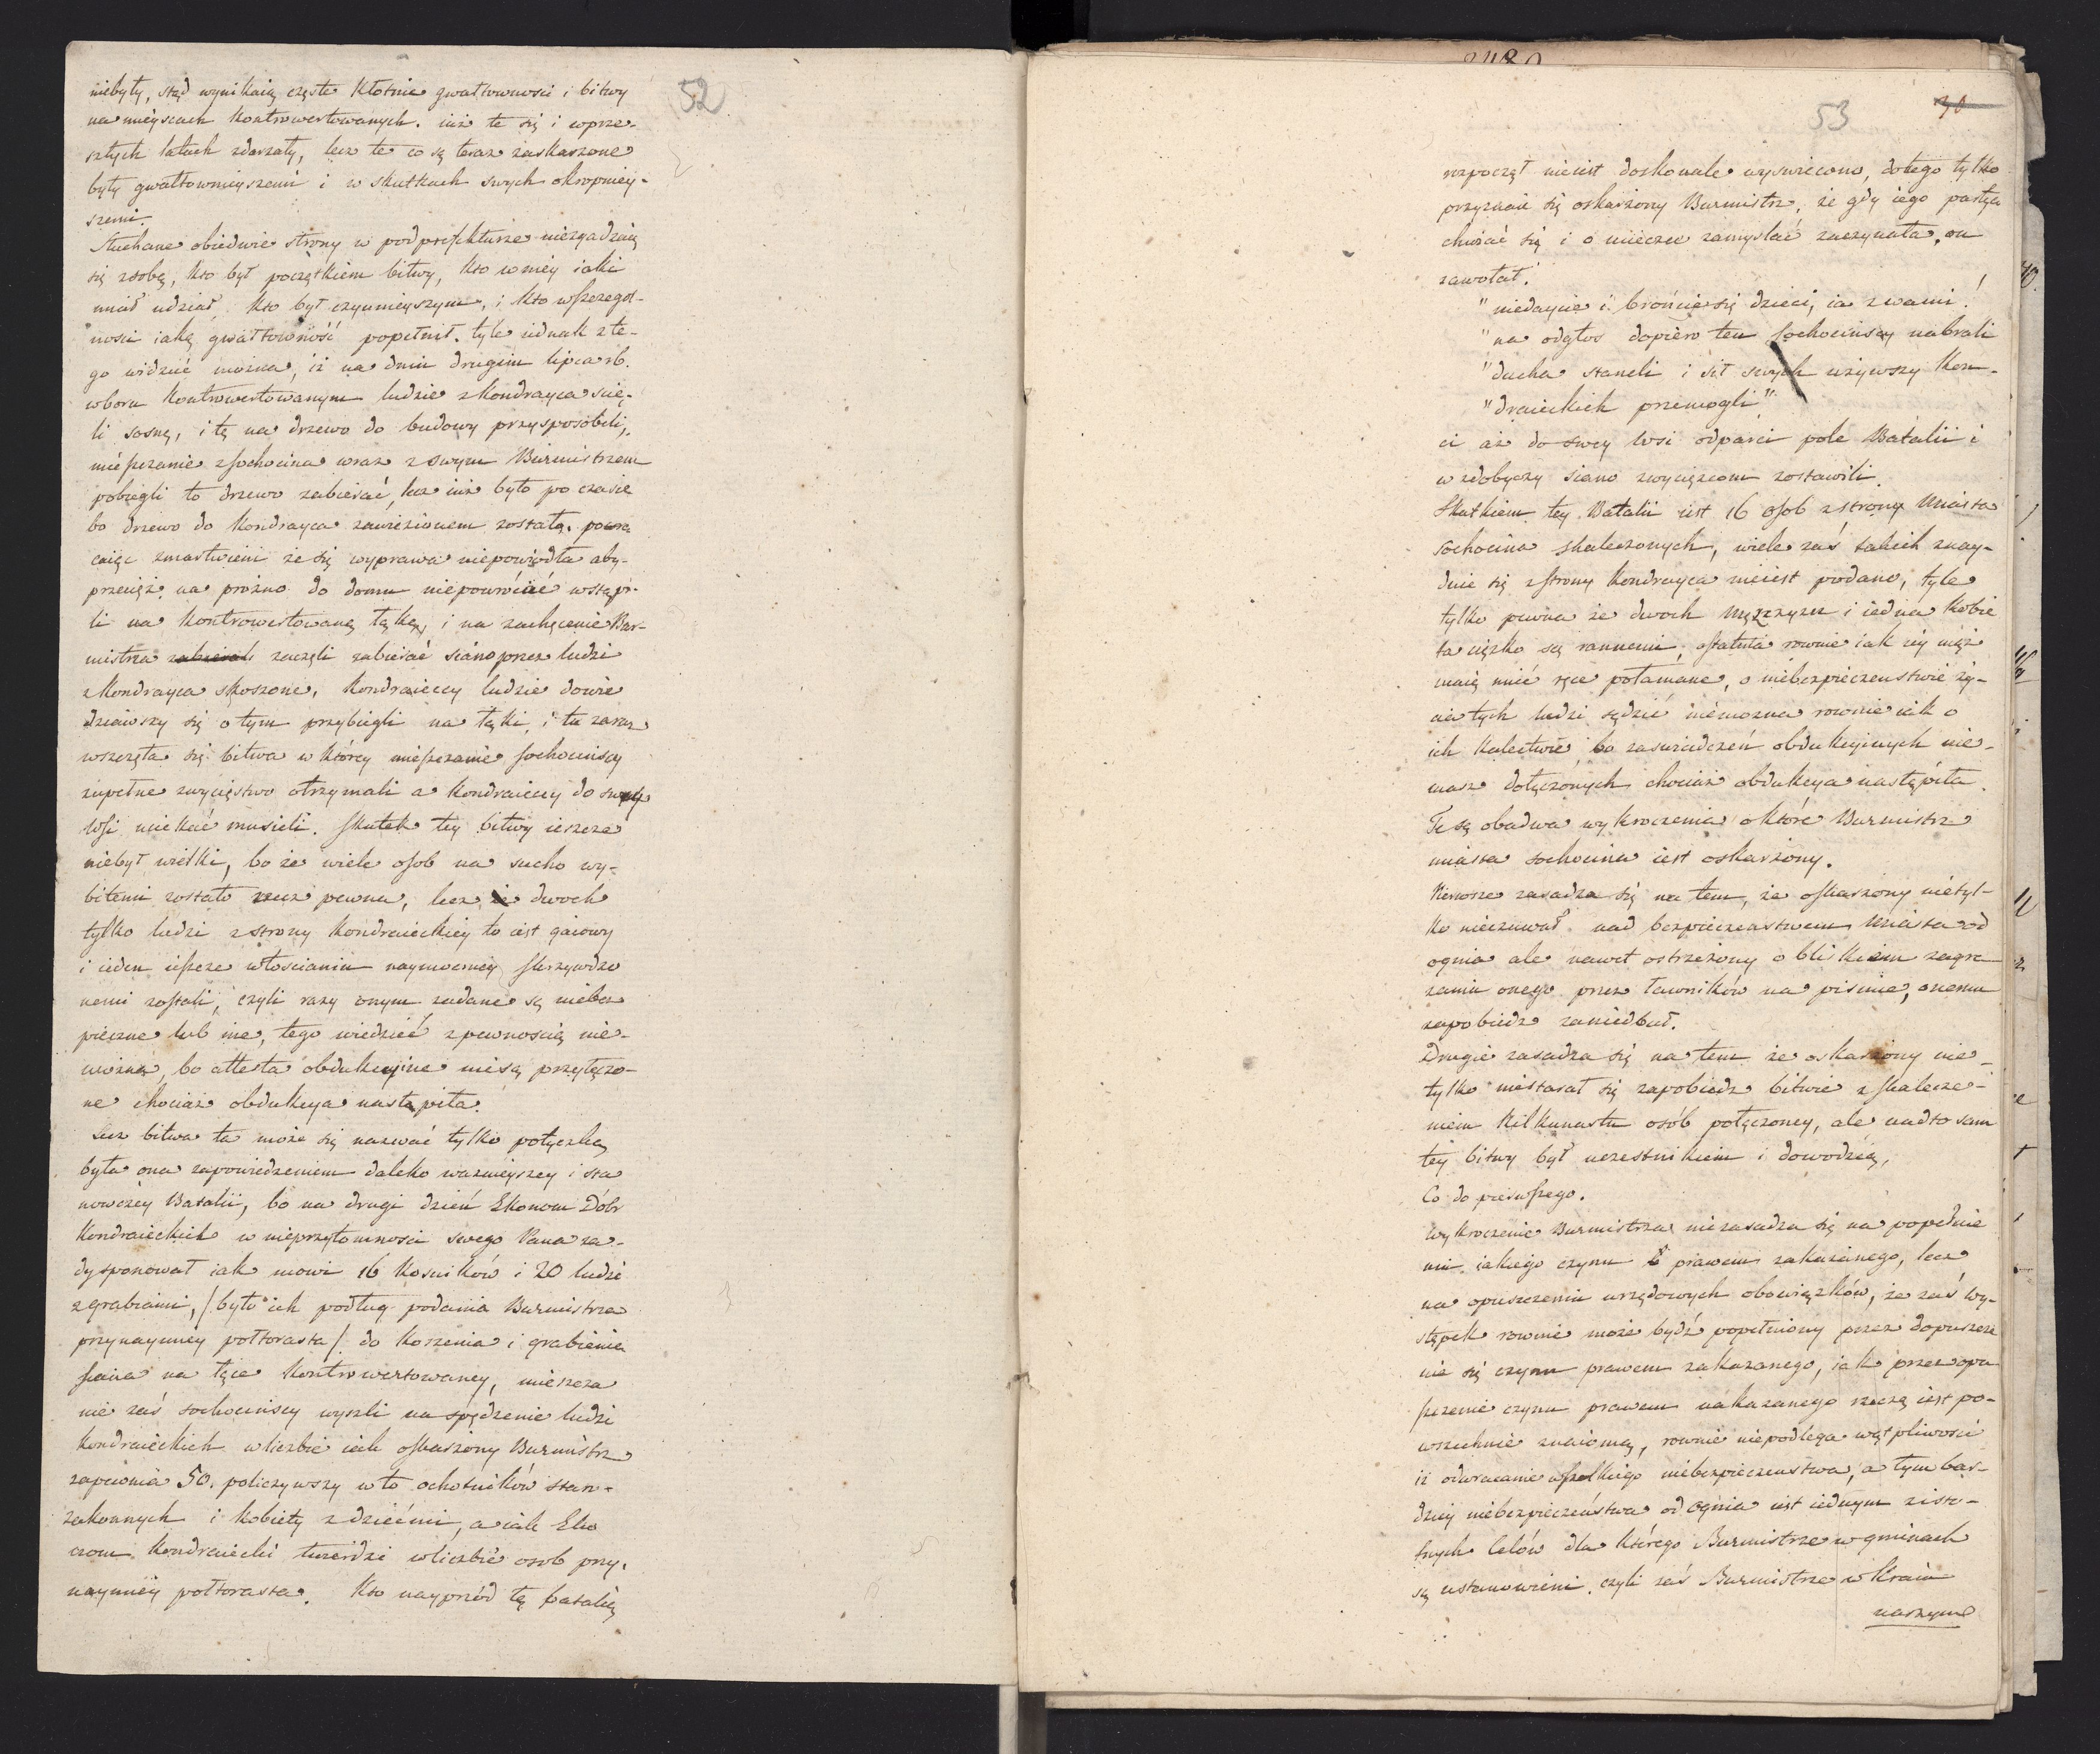 52
niebyły, stąd wynikaią częste Kłotnie gwałtowności i bitwy
na mieyscach Kontrowertowanych. iuż te się i wprze-
szłych latach zdarzały, lecz te co są teraz zaskarzone
były gwałtownieyszemi i w skutkach swych okropniey-
szemi.
Słuchane obiedwie strony w podprefekturze niezgadzaią
się zsobą, kto był początkiem bitwy, kto wniey iaki
miał udział, kto był czynnieyszym, i kto wszczegol-
ności iaką gwałtowność popełnił. tyle iednak z te-
go widzieć można, iż na dniu drugim lipca rb.
wboru Kontrowertowanym ludzie z Kondrayca scię-
li sosnę, i tę na drzewo do budowy przysposobili,
mieszczanie z Sochocina wraz z swym Burmistrzem
pobiegli to drzewo zabierać, lecz iuż było po czasie
bo drzewo do Kondrayca zawiezionem zostało. powra
caiąc zmartwieni że się wyprawa niepowiodła aby-
przecież na prożno do domu niepowrócić wstąpi-
li na Kontrowertowaną łąkę, i na zachęcenie Bur-
mistrza zabierali zaczęli zabierać siano przez ludzi
z Kondrayca skoszone. Kondraieccy ludzie dowie
dziawszy się o tym przybiegli na łąki, i tu zaraz
wszczęła się bitwa w którey mieszczanie Sochocinscy
zupełne zwycięstwo otrzymali a Kondraieccy do swey
wsi uciekać musieli. Skutek tey bitwy ieszcze
niebył wielki, bo że wiele osob na sucho wy-
bitemi zostało rzecz pewna, lecz że dwoch
tylko ludzi z strony Kondraieckiey to iest gaiowy
i ieden ieszcze włoscianin naymocniey skrzywdzo
nemi zostali, czyli razy onym zadane są niebez
pieczne lub nie, tego wiedzieć z pewnoscią nie-
można, bo attesta obdukcyine niesą przyłączo-
ne chociaż obdukcya nastąpiła.
Lecz bitwa ta może się nazwać tylko potyczką
była ona zapowiedzeniem daleko ważnieyszey i sta
nowczey Batalii, bo na drugi dzień Ekonom Dóbr
Kondraieckich w nieprzytomności swego Pana za-
dysponował iak mowi 16 Kosników i 20 ludzi
z grabiami, /: było ich podług podania Burmistrza
przynaymniey połtorasta /: do koszenia i grabienia
siana na łące Kontrowertowaney, mieszcza
nie zaś Sochocinscy wyszli na spędzenie ludzi
Kondraieckich w liczbie iak oskarzony Burmistrz
zapewnia 50. policzywszy w to ochotników staro-
zakonnych i kobiety z dziećmi, a iak Eko
nom Kondraiecki twierdzi w liczbie osob przy-
naymniey połtorasta. Kto nayprzód tę batalią
53
30
rozpoczął nieiest doskonale wyswiecono, dotego tylko
przyznaie się oskarżony Burmistrz, że gdy iego partya
chwiać się i o ucieczce zamyslać zaczynała, on
zawołał!
"niedaycie i brońcie się dzieci, ia z wami!
"na odgłos dopiero ten Sochocinscy nabrali
"ducha staneli i sił swych używszy Kon-
"draieckich przemogli"
ci aż do swey wsi odparci pole Batalii i
w zdobyczy siano zwycięzcom zostawili.
Skutkiem tey Batalii iest 16 osob z strony Miasta
Sochocina skaleczonych, wiele zaś takich znay-
duie się z strony Kondrayca nieiest podano, tyle
tylko pewna że dwoch męzczyzn i iedna Kobie
ta ciężko są rannemi, ostatnia rownie iak iey mąż
maią mieć ręce połamane, o niebezpieczenstwie ży-
cia tych ludzi sądzić niemożna rownie iak o
ich Kalectwie bo zaswiadczeń obdukcyinych nie-
masz dołączonych chociaż obdukcya nastąpiła.
Te są obadwa wykroczenia o które Burmistrz
miasta Sochocina iest oskarżony.
Pierwsze zasadza się na tem, że oskarzony nietyl-
ko nieczuwał nad bezpieczenstwem Miasta od
ognia ale nawet ostrzeżony o bliskiem zagro-
żeniu onego przez ławników na pismie, onemu
zapobiedz zaniedbał.
Drugie zasadza się na tem że oskarżony nie-
tylko niestarał się zapobiedz bitwie z skalecze-
niem Kilkunastu osób połączoney, ale nadto sam
tey bitwy był uczestnikiem i dowodzcą.
Co do pierwszego.
Wykroczenie Burmistrza niezasadza się na popełnie
niu iakiego czynu prawem zakazanego, lecz
na opuszczeniu urzędowych obowiązków, że zaś wy-
stępek rownie może bydź popełniony przez dopuszcze
nie się czynu prawem zakazanego, iak przez opu
szczenie czynu prawem nakazanego rzeczą iest po-
wszechnie znaiomą, rownie niepodlega wątpliwości
iż odwracanie wszelkiego niebezpieczenstwa, a tym bar-
dziey niebezpieczeństwa od Ognia iest iednym z isto-
tnych Celów dla którego Burmistrze w gminach
są ustanowieni. czyli zaś Burmistrze w Kraiu
naszym